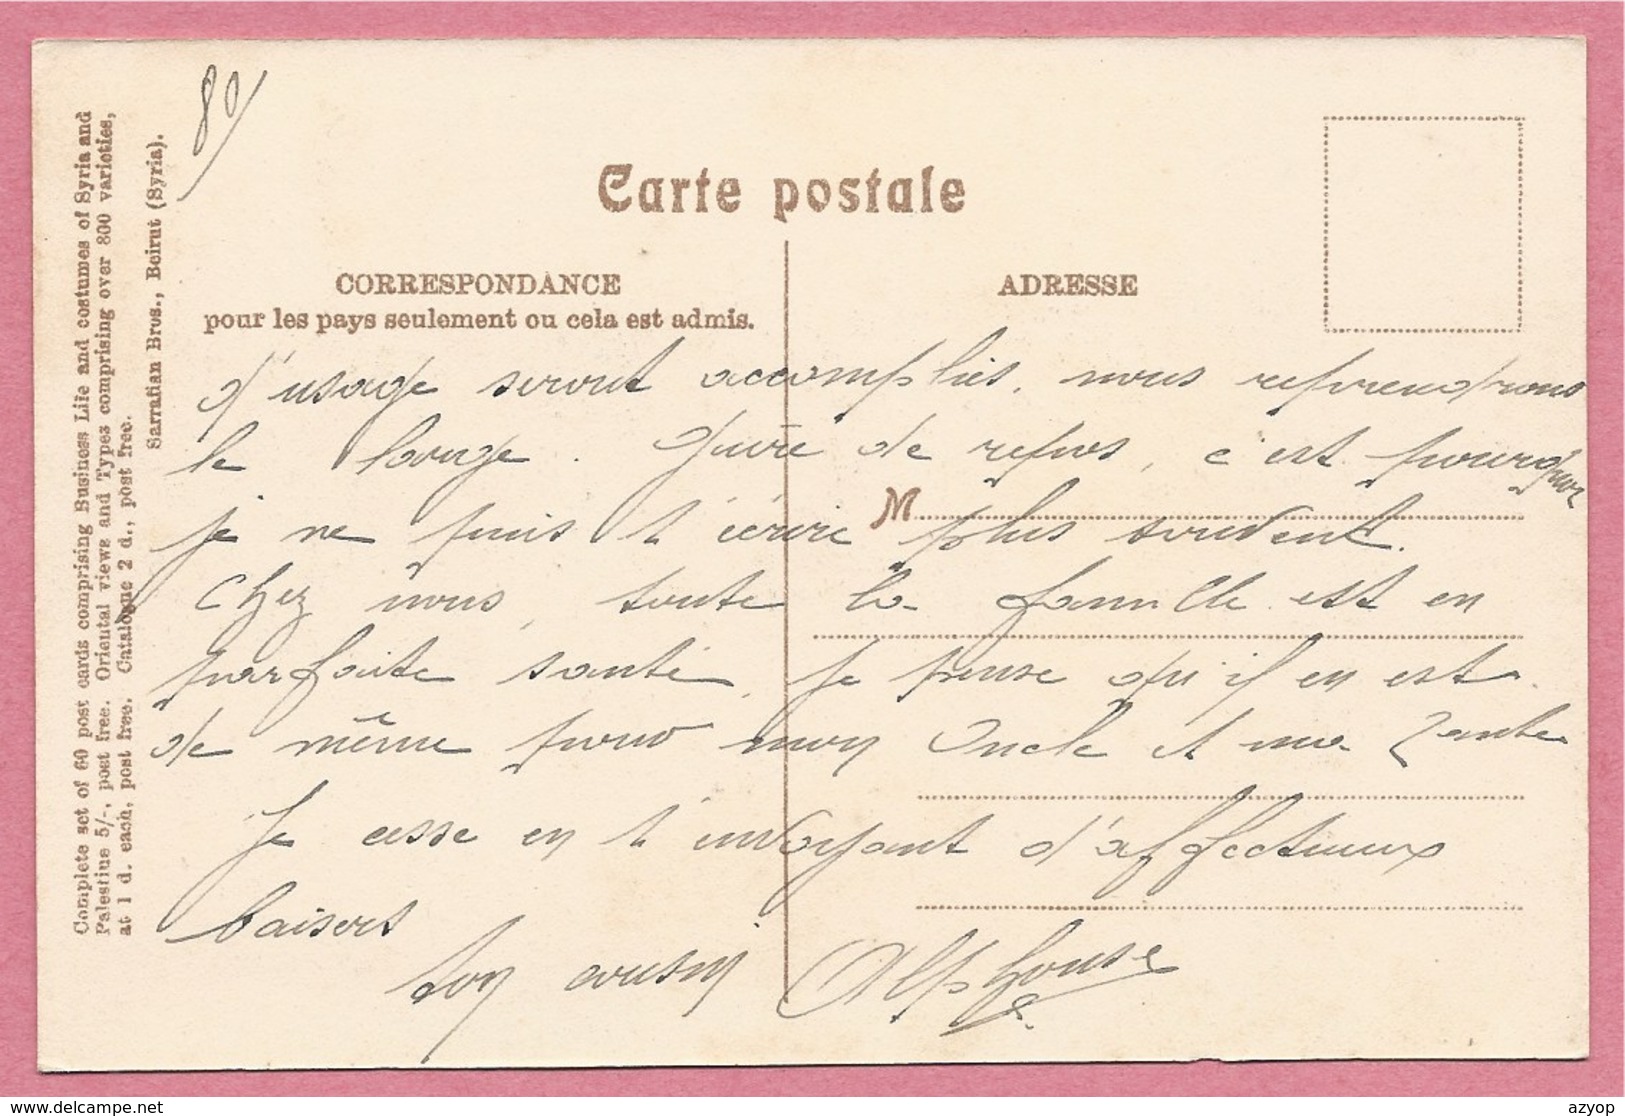 80
Complete set of 60 post cards comprising Business Life and costumes of Syria and
Palestine 5/-, post free. Oriental views and Types comprising over 800 varieties,
at 1 d. each, post free. Catalogue 2 d., post free.
Sarrafian Bros., Beirut (Syria).
Carte postale
CORRESPONDANCE
pour les pays seulement ou cela est admis.
ADRESSE
M
d'usage seront accomplies, nous reprendrons
le large. de refus, c'est pourquoi
je ne puis t'écrire plus souvent.
Chez nous, toute la famille est en
parfaite santé, je pense qu'il en est
de même pour mon Oncle et ma Tante
Je cesse en t'envoyant d'affectueux
baisers
ton cousin Alphonse
delcampe.net
azyop